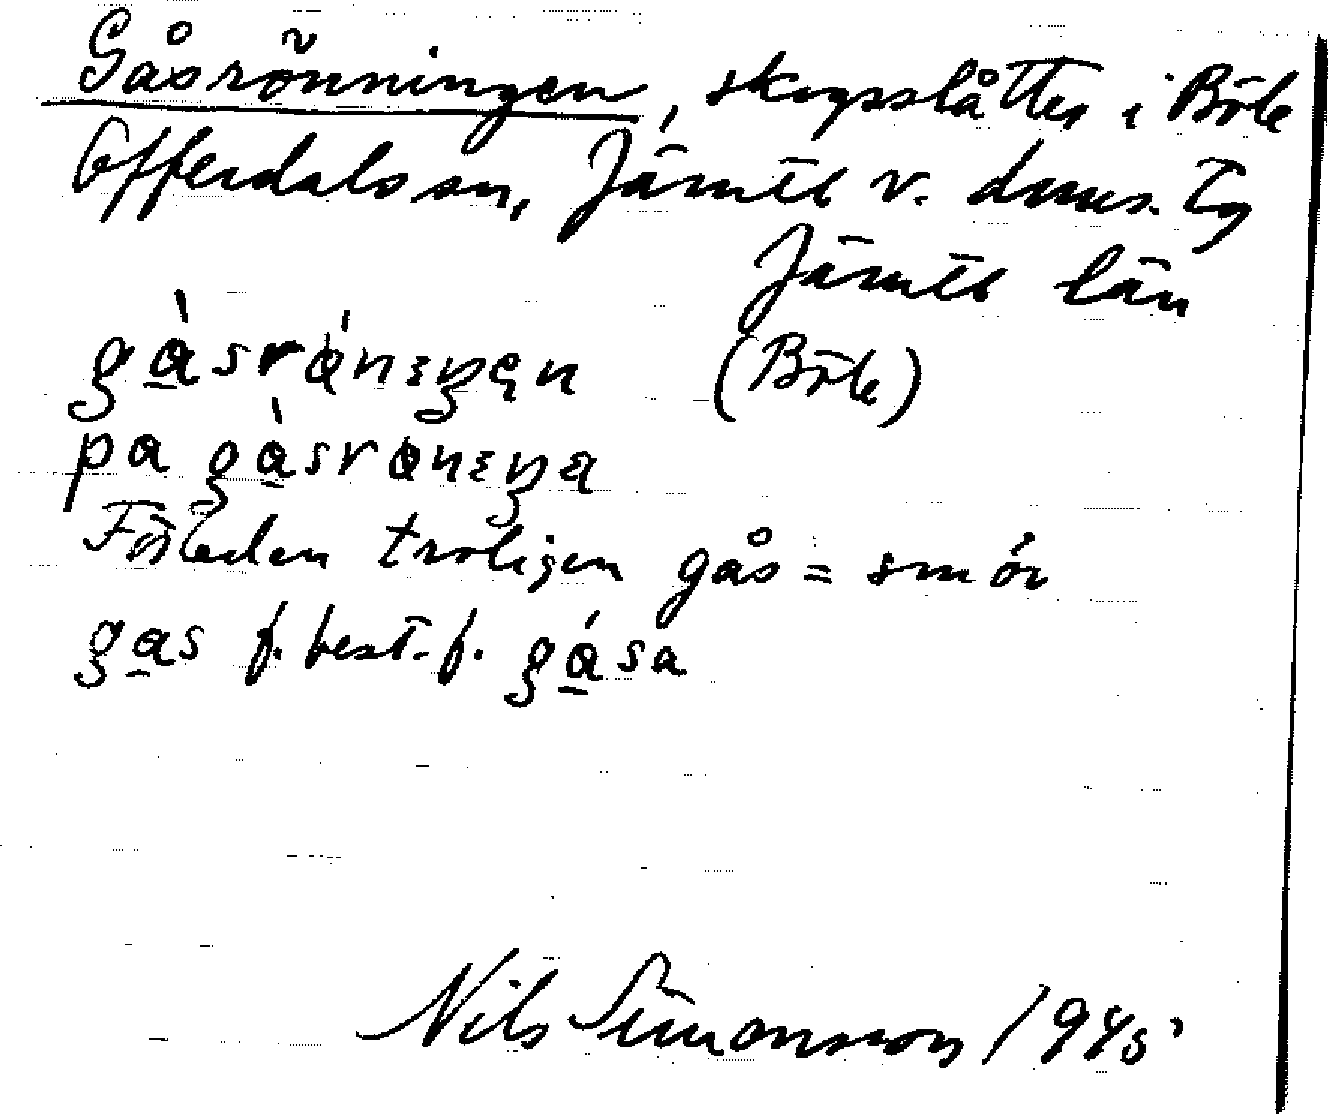 Gåsrönningen, skogsslåtter i Böle
Offerdals sn, Jämtl v. doms. Tg
Jämtl län
gàsrónɛŋen (Böle)
pa gàsrɑnɛŋa
Förleden troligen gås = smör
gas f. best. f. gása
Nils Simonsson 1945